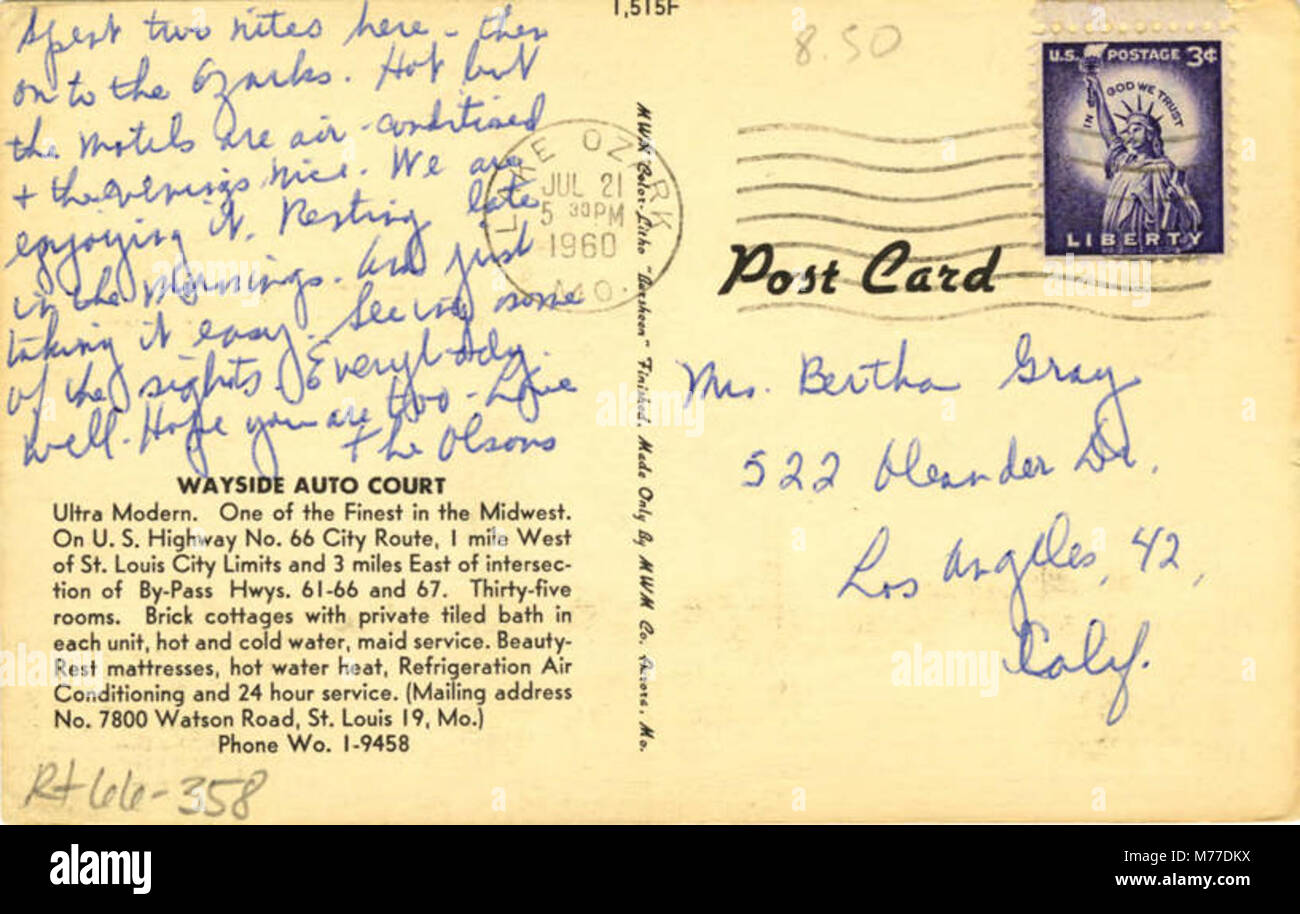 1,515F
8.50
Spent two nites here - then
on to the Ozarks. Hot but
the motels are air-conditioned
+ the evenings nice. We are
enjoying it. Resting late
in the mornings. And just
taking it easy. Seeing some
of the sights. Everybody
well. Hope you are too - Love
The Olsons
WAYSIDE AUTO COURT
Ultra Modern. One of the Finest in the Midwest.
On U. S. Highway No. 66 City Route, 1 mile West
of St. Louis City Limits and 3 miles East of intersec-
tion of By-Pass Hwys. 61-66 and 67. Thirty-five
rooms. Brick cottages with private tiled bath in
each unit, hot and cold water, maid service. Beauty-
Rest mattresses, hot water heat, Refrigeration Air
Conditioning and 24 hour service. (Mailing address
No. 7800 Watson Road, St. Louis 19, Mo.)
Phone Wo. 1-9458
Rt 66-358
LAKE OZARK
JUL 21
5 30 PM
1960
MO.
MWM Color-Litho "Aurheen" Finished. Made Only By MWM Co. Aurora, Mo.
U.S. POSTAGE 3¢
IN GOD WE TRUST
LIBERTY
Post Card
Mrs. Bertha Gray
522 Oleander Dr.
Los Angeles, 42,
Calif.
alamy
a
alamy
Image ID: M77DKX
www.alamy.com